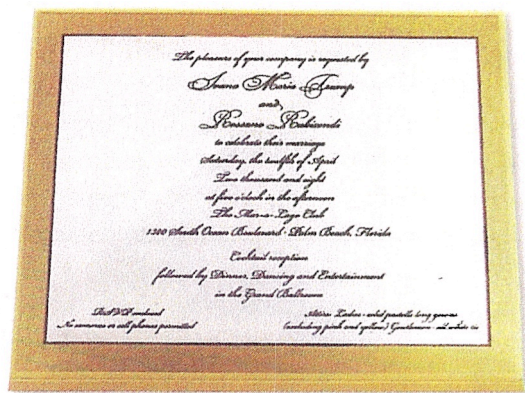 The pleasure of your company is requested by
Ivana Marie Trump
and
Rossano Rubicondi
to celebrate their marriage
Saturday, the twelfth of April
Two thousand and eight
at five o'clock in the afternoon
The Mar-a-Lago Club
1100 South Ocean Boulevard · Palm Beach, Florida
Cocktail reception
followed by Dinner, Dancing and Entertainment
in the Grand Ballroom
RSVP enclosed
No cameras or cell phones permitted
Attire: Ladies - solid pastels long gowns
(excluding pink and yellow) Gentlemen - all white tie